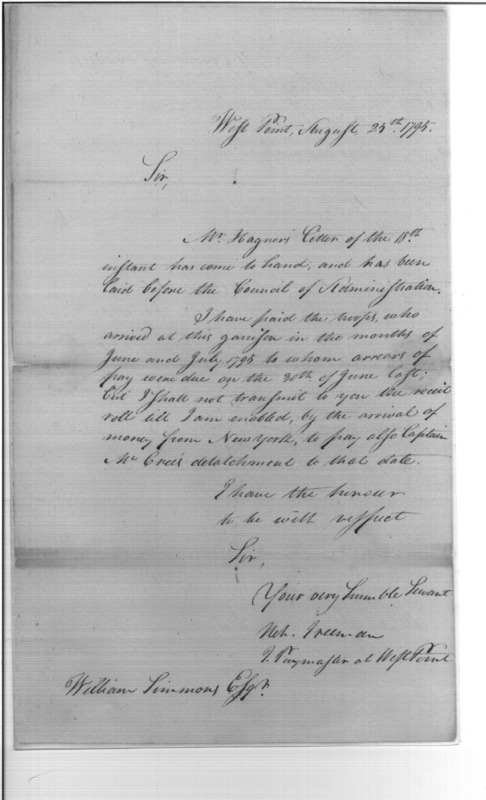 West Point, August 25th. 1795.
Sir,
Mr. Hagner's Letter of the 18th
instant has come to hand, and has been
laid before the Council of Administration.
I have paid the troops, who
arrived at this garrison in the months of
June and July 1795 to whom arrears of
pay were due on the 30th of June last:
but I shall not transmit to you the receit
roll till I am enabled, by the arrival of
money from New York, to pay also Captain
Mc Crees detatchment to that date.
I have the honour
to be with respect
Sir,
Your very humble Servant
Neh. Freeman
Paymaster at West Point
William Simmons Esqr.